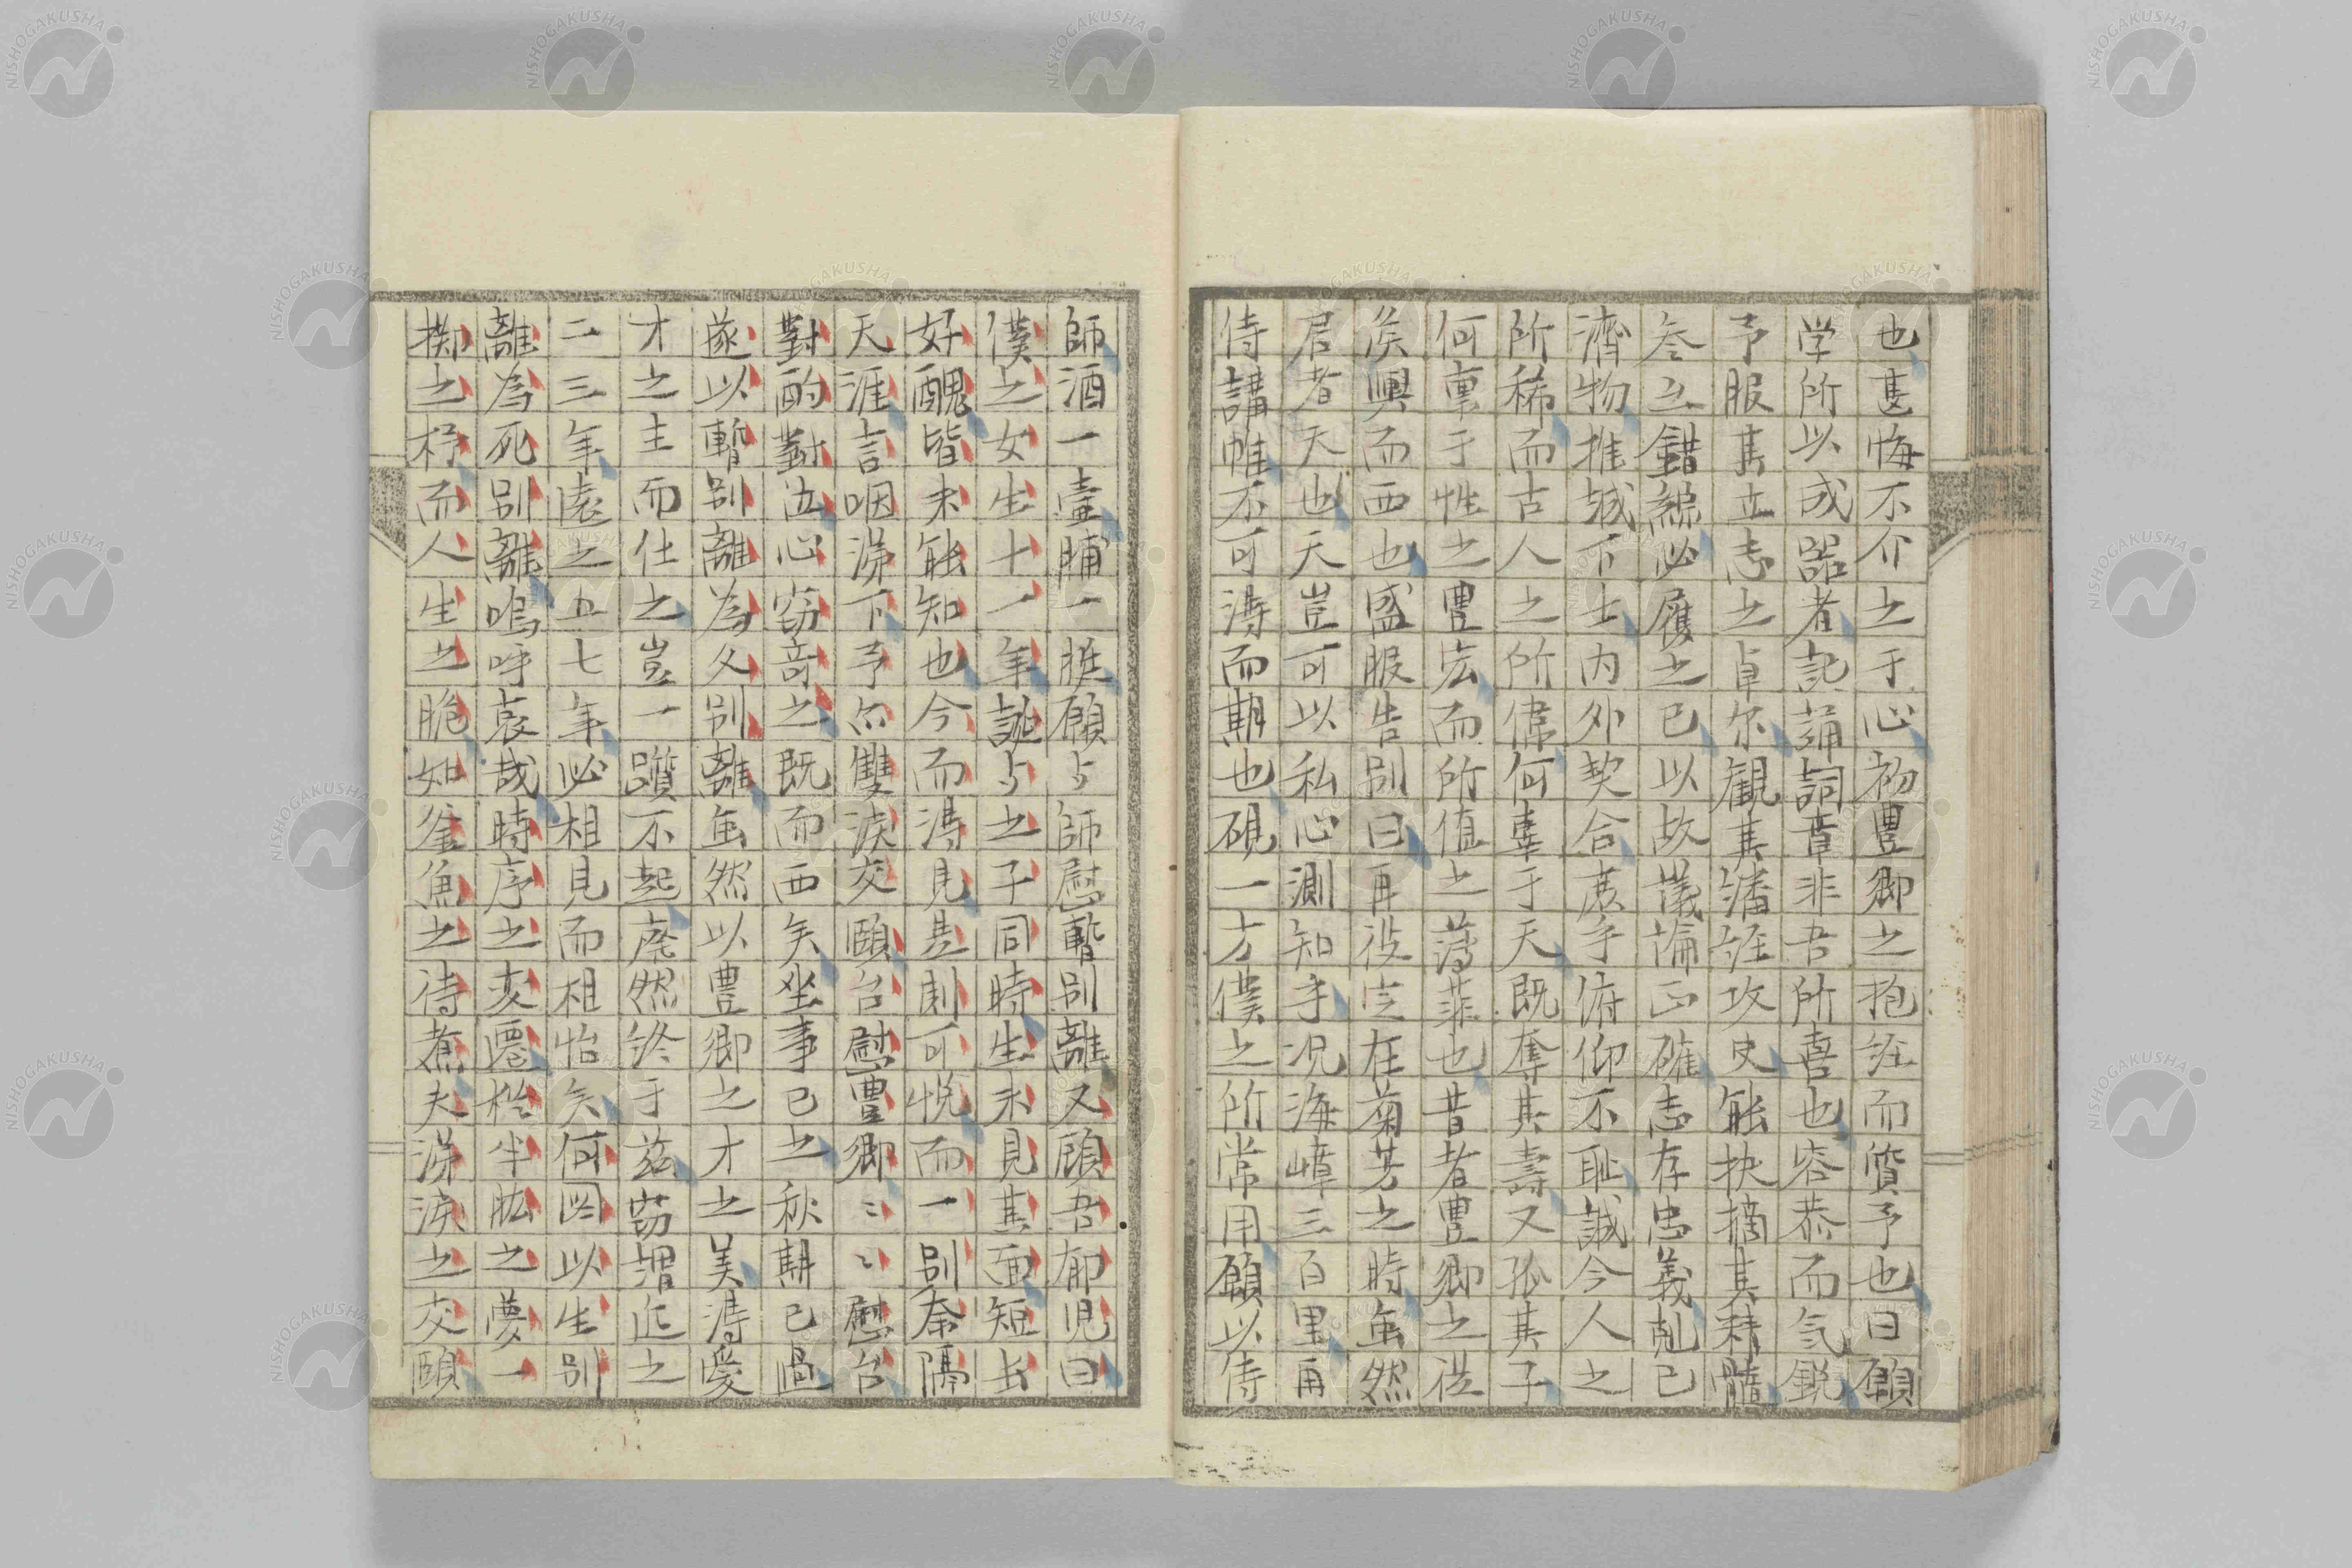 也甚悔不介之于心初豊卿之抱経而質予也曰願
学所以成器者記誦詞章非吾所喜也容恭而気鋭
予服其立志之卓尓観其繙経攻史能抉摘其精髄
参互錯綜必履之已以故議論正確志存忠義剋已
濟物推誠下士内外契合應手俯仰不耻誠今人之
所稀而古人之所偉何辜于天既奪其壽又孤其子
何稟于性之豊宏而所值之薄菲也昔者豊卿之従
矦輿而西也盛服告別曰再役定在菊芳之時虽然
君者天也天豈可以私心測知乎况海嶂三百里再
侍講帷不可淂而期也硯一方僕之所常用願以侍
師酒一壷脯一脡願与師慰暫別離又顧吾郁児曰
僕之女生十一年誕与之子同時生未見其面短长
好醜皆未能知也今而淂見差剋可悦而一別奈隔
天涯言咽涕下予亦雙淚交頤台慰豊卿〻〻慰台
對酌對泣心窃竒之既而西矣坐事已之秋期已過
遂以暫別離為久別離虽然以豊卿之才之美淂愛
才之主而仕之豈一躓不起廃然終于茲窃謂近之
二三年遠之五七年必相見而相怡矣何図以生別
離為死別離嗚呼哀哉時序之変遷枕半肱之夢一
擲之杼而人生之脆如釜魚之待煮夫涕淚之交頤